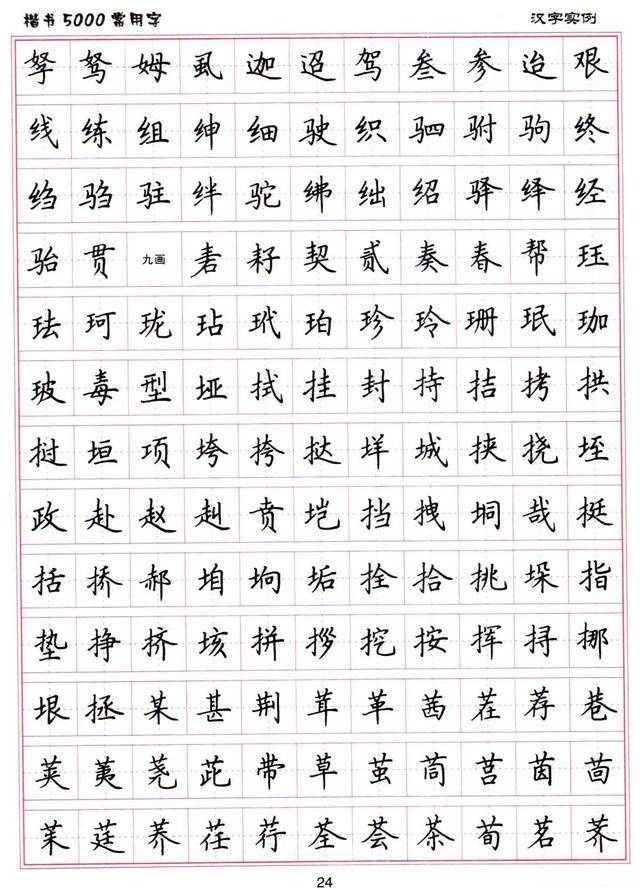 楷书5000常用字 汉字实例
孥 驽 姆 虱 迦 迢 驾 叁 参 迨 艰
线 练 组 绅 细 驶 织 驷 驸 驹 终
绉 驺 驻 绊 驼 绋 绌 绍 驿 绎 经
骀 贯 九画 砉 耔 契 贰 奏 春 帮 珏
珐 珂 珑 玷 玳 珀 珍 玲 珊 珉 珈
玻 毒 型 垭 拭 挂 封 持 拮 拷 拱
挝 垣 项 垮 挎 挞 垟 城 挟 挠 垤
政 赴 赵 赳 贲 垲 挡 拽 垌 哉 挺
括 挢 郝 垍 垧 垢 拴 拾 挑 垛 指
垫 挣 挤 垓 拼 拶 挖 按 挥 挦 挪
垠 拯 某 甚 荆 茸 革 茜 茬 荐 巷
荚 荑 荛 茈 带 草 茧 茼 莒 茵 茴
茱 莛 荞 茯 荇 荃 荟 茶 荀 茗 荠
24